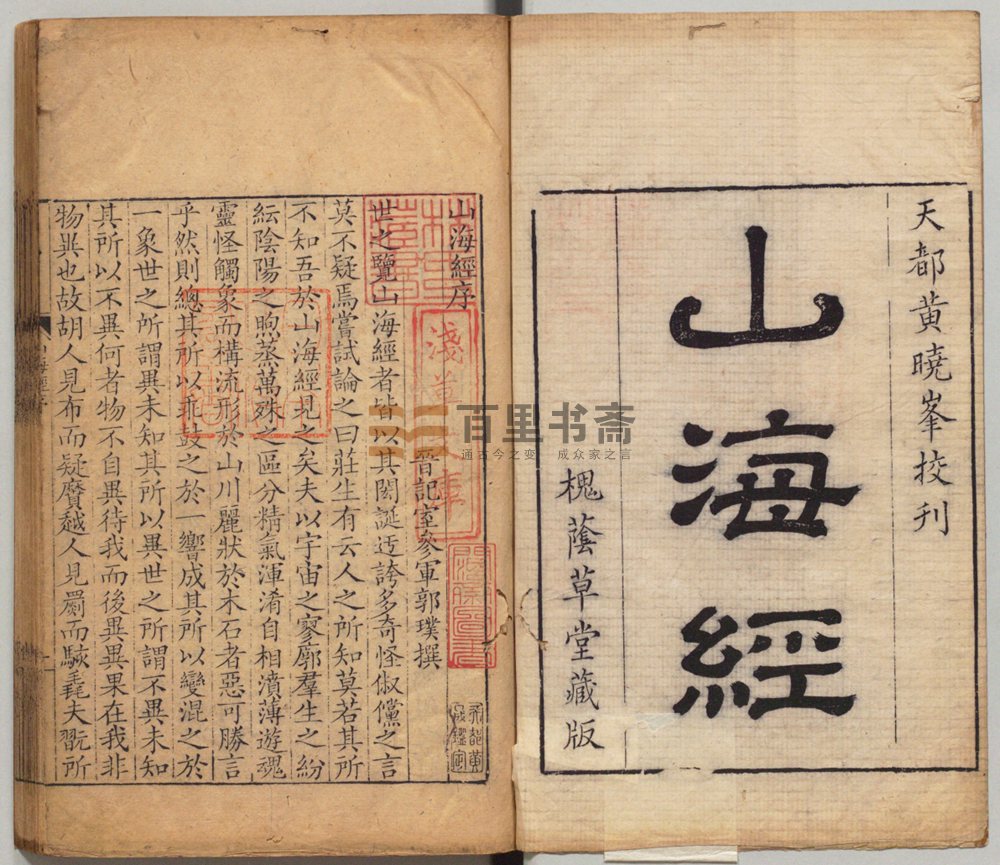 天都黃曉峯挍刊
山海經
槐蔭草堂藏版
山海經序
晉記室參軍郭璞撰
世之覽山海經者皆以其閎誕迃誇多奇怪俶儻之言
莫不疑焉嘗試論之曰莊生有云人之所知莫若其所
不知吾於山海經見之矣夫以宇宙之寥廓羣生之紛
紜陰陽之煦蒸萬殊之區分精氣渾淆自相濆薄遊魂
靈怪觸象而構流形於山川麗狀於木石者惡可勝言
乎然則總其所以乖鼓之於一響成其所以變混之於
一象世之所謂異未知其所以異世之所謂不異未知
其所以不異何者物不自異待我而後異異果在我非
物異也故胡人見布而疑黂越人見罽而駭毳夫翫所
百里书斋
通古今之变 成众家之言